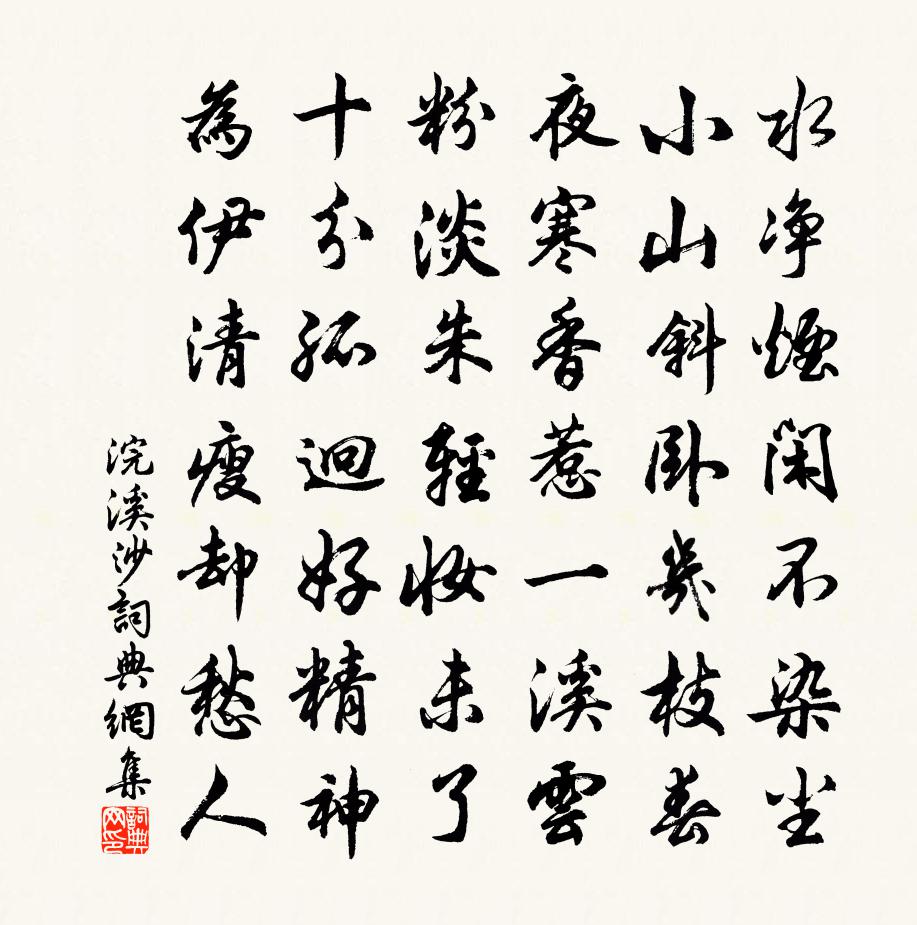 水净煙閑不染尘
小山斜卧幾枝春
夜寒香惹一溪雲
粉淡朱輕妆未了
十分孤迥好精神
為伊清瘦却愁人
浣溪沙詞典網集
詞典网印